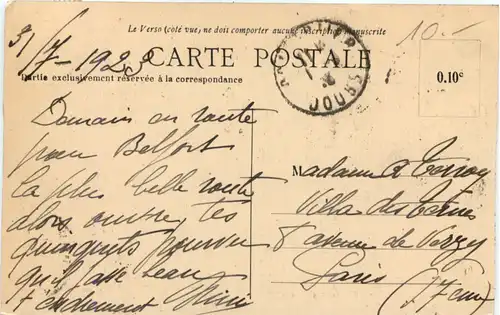 Le Verso (côté vue) ne doit comporter aucune inscription manuscrite
31/7-1928
10.-
CARTE POSTALE
Partie exclusivement réservée à la correspondance
0.10c
DOUBS
Demain en route
pour Belfort
la plus belle route
alors ouvre tes
quinquets pourvu
qu'il fasse beau
Tendrement Mimi
Madame A Terroy
Villa des Ternes
8 avenue de Verzy
Paris (17em)